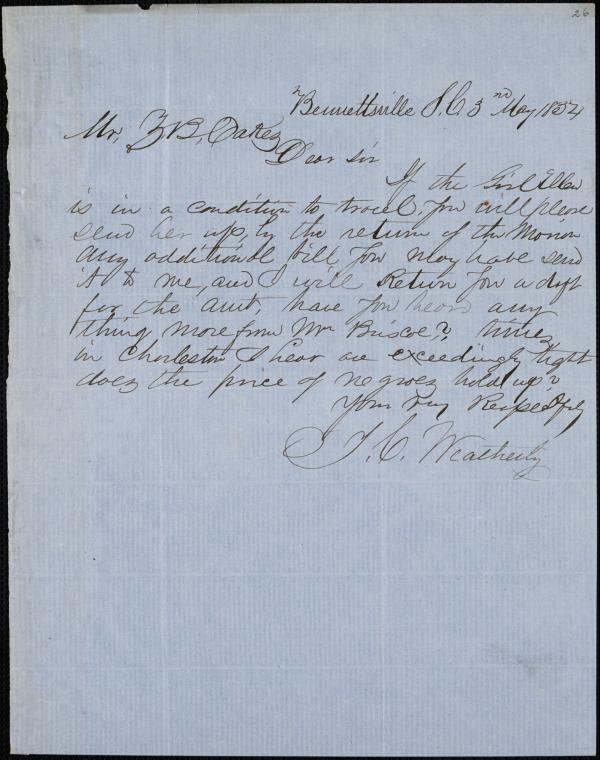 26
Bennettsville S.C. 3nd May 1854
Mr, Z B, Oakes
Dear sir
If the Girl Ellen
is in a condition to travel. you will please
send her up, by the return of the
any additional bill you may have send
it to me, and I will Return you a dft
for the amt, have you heard any
thing more from Wm Briscoe?, times
in Charleston I hear are exceedingly tight
does the price of negroes hold up?
Your Respectfuly
T. C. Weatherly